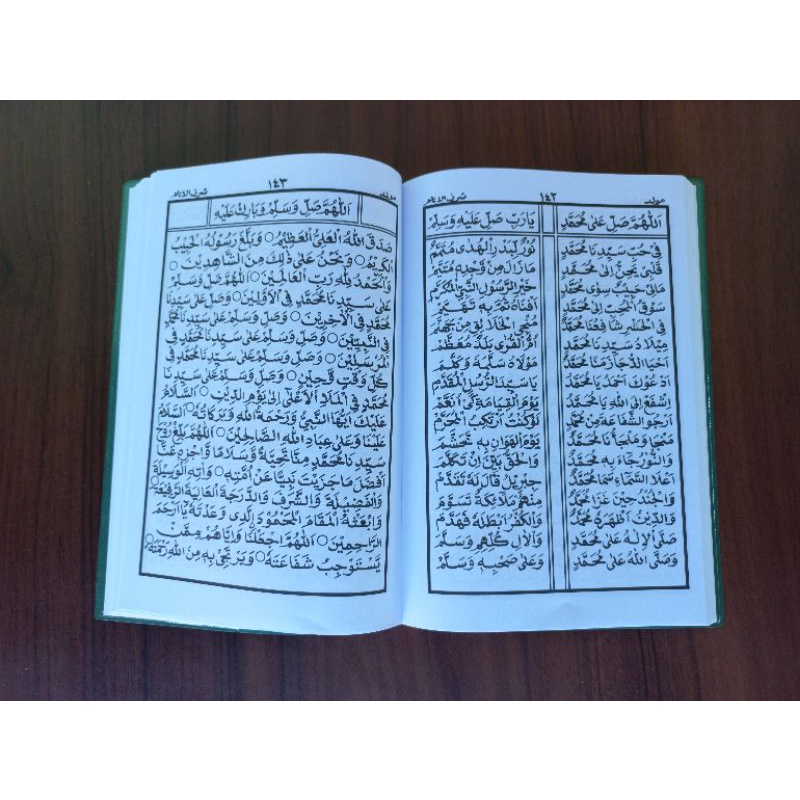 مولد ١٤٢ شرف الانام
اَللّٰهُمَّ صَلِّ عَلٰى مُحَمَّدٍ يَا رَبِّ صَلِّ عَلَيْهِ وَسَلِّمْ
فِيْ حُبِّ سَيِّدِنَا مُحَمَّدٍ نُوْرٌ لِبَدْرِ الْهُدٰى مُتَمَّمْ
قَلْبِيْ يَحِنُّ اِلٰى مُحَمَّدٍ مَازَالَ مِنْ وَجْدِهِ مُتَيَّمْ
مَالِيْ حَبِيْبٌ سِوٰى مُحَمَّدٍ خَيْرُ الرَّسُوْلِ النَّبِيِّ الْمُكَرَّمْ
شَوْقُ الْمُحِبِّ اِلٰى مُحَمَّدٍ اَفْنَاهُ ثُمَّ بِهِ تَهَيَّمْ
فِي الْحَشْرِ شَافِعُنَا مُحَمَّدٌ مُنْجِي الْخَلَائِقِ مِنْ جَهَنَّمْ
مِيْلَادُ سَيِّدِنَا مُحَمَّدٍ اُمُّ الْقُرٰى بَلَدٌ مُعَظَّمْ
اَحْيَا الدُّجَا زَمَنًا مُحَمَّدٌ مَوْلَاهُ سَلَّمَهُ وَكَلَّمْ
اَدْعُوْكَ اَحْمَدُ يَا مُحَمَّدُ يَا سَيِّدَ الرُّسُلِ الْمُقَدَّمْ
اِشْفَعْ اِلَى اللهِ يَا مُحَمَّدُ يَوْمَ الْقِيَامَةِ كَيْ اُنَعَّمْ
اَرْجُو الشَّفَاعَةَ مِنْ مُحَمَّدٍ لَوْ كُنْتُ اَرْتَكِبُ الْمُحَرَّمْ
مَنْجَا وَمَلْجَأُنَا مُحَمَّدٌ يَوْمَ الْهَوَانِ بِهِ نُحَشَّمْ
وَالنُّوْرُ جَاءَ بِهِ مُحَمَّدٌ وَالْحَقُّ بَيَّنَ اِنْ تَكَلَّمْ
اَعْلَا السَّمَاءِ سَمَا مُحَمَّدٌ جِبْرِيْلُ قَالَ لَهُ تَقَدَّمْ
وَالْجُنْدُ حِيْنَ غَزَا مُحَمَّدٌ مِنْهُمْ مَلَائِكَةٌ تَسَوَّمْ
وَالدِّيْنُ اَظْهَرَهُ مُحَمَّدٌ وَالْكُفْرُ اَبْطَلَهُ فَهُدِّمْ
صَلَّى الْاِلٰهُ عَلٰى مُحَمَّدٍ وَالْاٰلِ كُلِّهِمِ وَسَلَّمْ
وَصَلَّى اللهُ عَلٰى مُحَمَّدٍ وَعَلٰى صَحْبِهِ وَسَلَّمْ
مولد ١٤٣ شرف الانام
اَللّٰهُمَّ صَلِّ وَسَلِّمْ وَبَارِكْ عَلَيْهِ
صَدَقَ اللهُ الْعَلِيُّ الْعَظِيْمُ ○ وَبَلَّغَ رَسُوْلُهُ الْحَبِيْبُ
الْكَرِيْمُ ○ وَنَحْنُ عَلٰى ذٰلِكَ مِنَ الشَّاهِدِيْنَ ○
وَالْحَمْدُ لِلّٰهِ رَبِّ الْعَالَمِيْنَ ○ اَللّٰهُمَّ صَلِّ وَسَلِّمْ
عَلٰى سَيِّدِنَا مُحَمَّدٍ فِي الْاَوَّلِيْنَ ○ وَصَلِّ وَسَلِّمْ عَلٰى سَيِّدِنَا
مُحَمَّدٍ فِي الْاٰخِرِيْنَ ○ وَصَلِّ وَسَلِّمْ عَلٰى سَيِّدِنَا مُحَمَّدٍ
فِي النَّبِيِّيْنَ ○ وَصَلِّ وَسَلِّمْ عَلٰى سَيِّدِنَا مُحَمَّدٍ فِي
الْمُرْسَلِيْنَ ○ وَصَلِّ وَسَلِّمْ عَلٰى سَيِّدِنَا مُحَمَّدٍ فِيْ
كُلِّ وَقْتٍ وَّحِيْنٍ ○ وَصَلِّ وَسَلِّمْ عَلٰى سَيِّدِنَا
مُحَمَّدٍ فِي الْمَلَاءِ الْاَعْلٰى اِلٰى يَوْمِ الدِّيْنِ ○ اَلسَّلَامُ
عَلَيْكَ اَيُّهَا النَّبِيُّ وَرَحْمَةُ اللهِ وَبَرَكَاتُهُ ○ اَلسَّلَامُ
عَلَيْنَا وَعَلٰى عِبَادِ اللهِ الصَّالِحِيْنَ ○ اَللّٰهُمَّ بَلِّغْ رُوْحَ
سَيِّدِنَا مُحَمَّدٍ مِنَّا تَحِيَّةً وَسَلَامًا ○ وَاجْزِهِ عَنَّا
اَفْضَلَ مَا جَزَيْتَ نَبِيًّا عَنْ اُمَّتِهِ ○ وَاٰتِهِ الْوَسِيْلَةَ
وَالْفَضِيْلَةَ وَالشَّرَفَ وَالدَّرَجَةَ الْعَالِيَةَ الرَّفِيْعَةَ ○
وَابْعَثْهُ الْمَقَامَ الْمَحْمُوْدَ الَّذِيْ وَعَدْتَهُ يَا اَرْحَمَ
الرَّاحِمِيْنَ ○ اَللّٰهُمَّ اجْعَلْنَا وَاِيَّاهُمْ مِمَّنْ
يَسْتَوْجِبُ شَفَاعَتَهُ ○ وَيَرْتَجِيْ بِهِ مِنَ اللهِ رَحْمَتَهُ ○